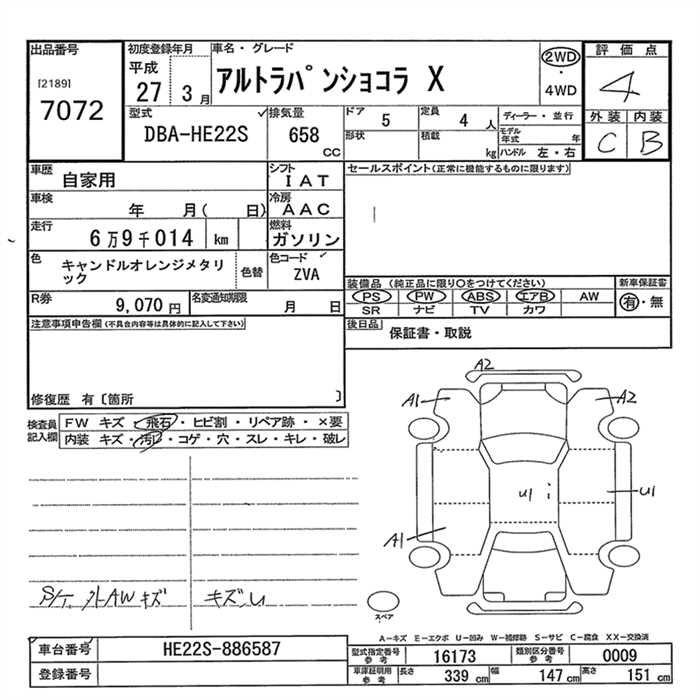 出品番号
[2189]
7072
初度登録年月
平成
27 3月
車名・グレード
アルトラパンショコラ X
2WD
・
4WD
評価点
4
外装 内装
C B
型式
DBA-HE22S
排気量
658
CC
ドア
5
形状
定員
4 人
積載
kg
ディーラー・並行
モデル年式 年
ハンドル 左・右
車歴
自家用
シフト
IAT
車検
年 月( 日)
冷房
AAC
走行
6万9千014 km
燃料
ガソリン
色
キャンドルオレンジメタリック
色替
色コード
ZVA
R券
9,070 円
名変通知期限
月 日
セールスポイント(正常に機能するものに限ります)
装備品 (純正品に限り○をつけてください)
PS PW ABS エアB AW
SR ナビ TV カワ
新車保証書
有・無
後日品
保証書・取説
注意事項申告欄(不具合内容等は具体的に記入して下さい)
修復歴 有〔箇所 〕
検査員記入欄
FW キズ・飛石・ヒビ割・リペア跡・×要
内装 キズ・汚レ・コゲ・穴・スレ・キレ・破レ
A2
A1
A2
U1
U1
A1
S/T. 外AWキズ
キズ, U
スペア
A-キズ E-エクボ U-凹み W-補修跡 S-サビ C-腐食 XX-交換済
車台番号
HE22S-886587
登録番号
型式指定番号 参考
16173
類別区分番号 参考
0009
車庫証明用 参考
長さ 339 cm
幅 147 cm
高さ 151 cm